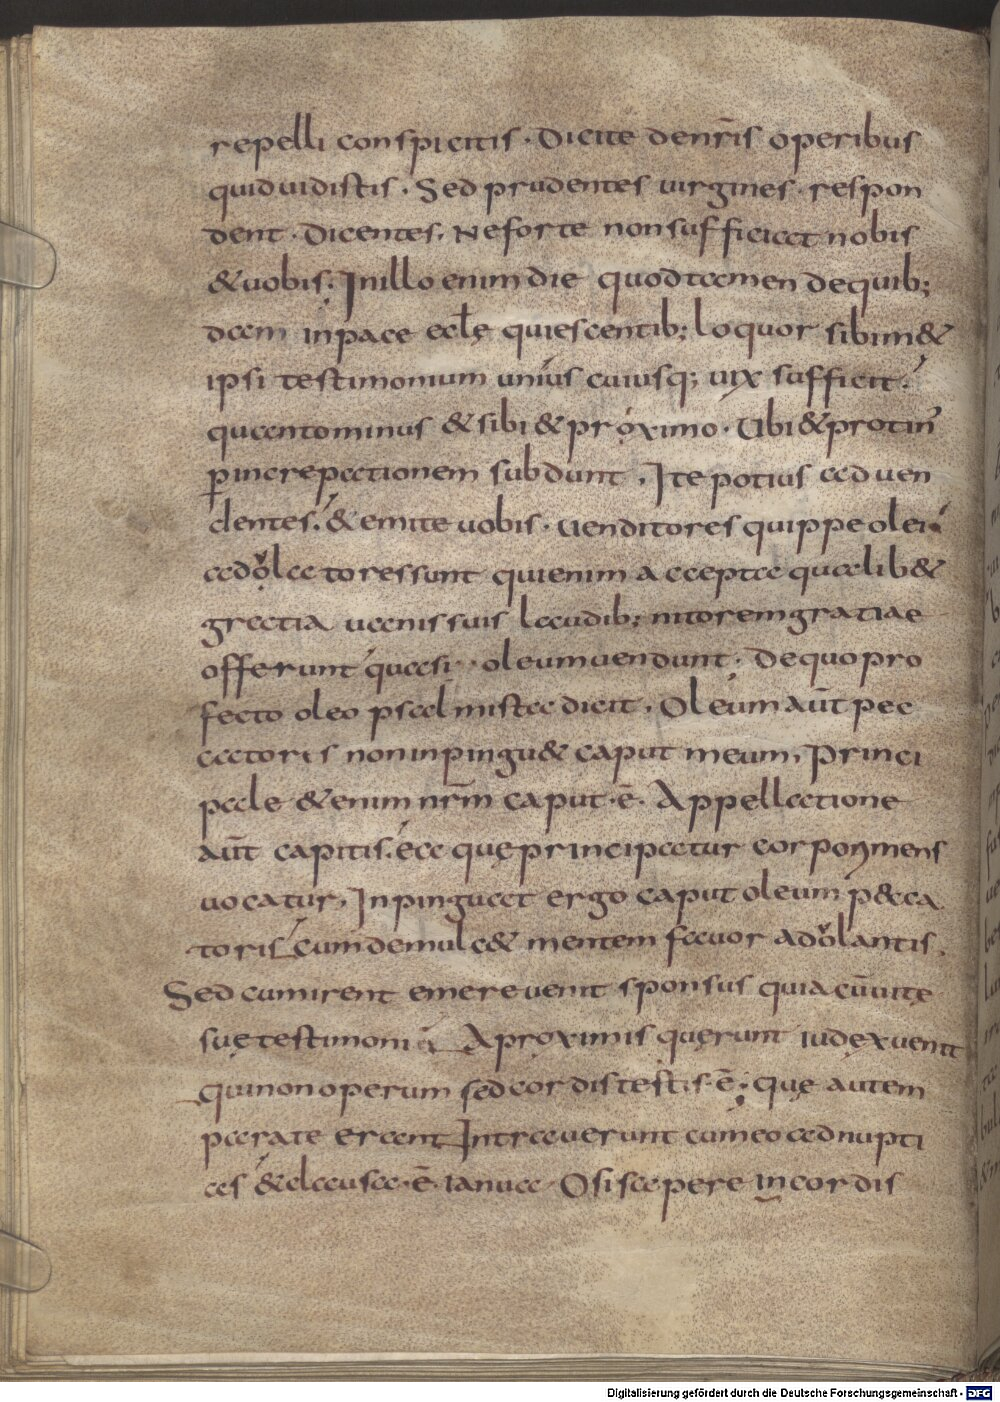 repelli conspicitis · Dicite denr̄is operibus
quid uidistis · Sed prudentes uirgines · respon
dent · Dicentes. Ne forte non sufficiat nobis
& uobis. In illo enim die quod tamen de quib;
dam in pace eccłę quiescentib; loquor sibim&
ipsi testimonium unius cuiusq; uix sufficit.
quanto minus & sibi & próximo · Ubi & protin'
p̱ increpationem subdunt . Ite potius ad uen
dentes. & emite uobis · uenditores quippe olei
adolatores sunt qui enim accepta qualib&
gratia uanis suis laudib; nitorem gratiae
offerunt quasi · oleum uendunt · De quo pro
fecto oleo psalmista dicit . Oleum aūt pec
catoris non inpingu& caput meum, Princi
pale &enim nr̄m caput · ē · Appellatione
aūt capitis. ea quę principatur corpori mens
uocatur, Inpinguat ergo caput oleum p&ca
toris cum demulc& mentem fauor adolantis.
Sed cum irent emere uenit sponsus quia cū uitę
suę testimonia A proximis quęrunt iudex uenit
qui non operum sed cordis testis · ē; quę autem
paratę erant Intrauerunt cum eo ad nupti
as & clausa · ē · ianua · O si sapere in cordis
Digitalisierung gefördert durch die Deutsche Forschungsgemeinschaft - DFG